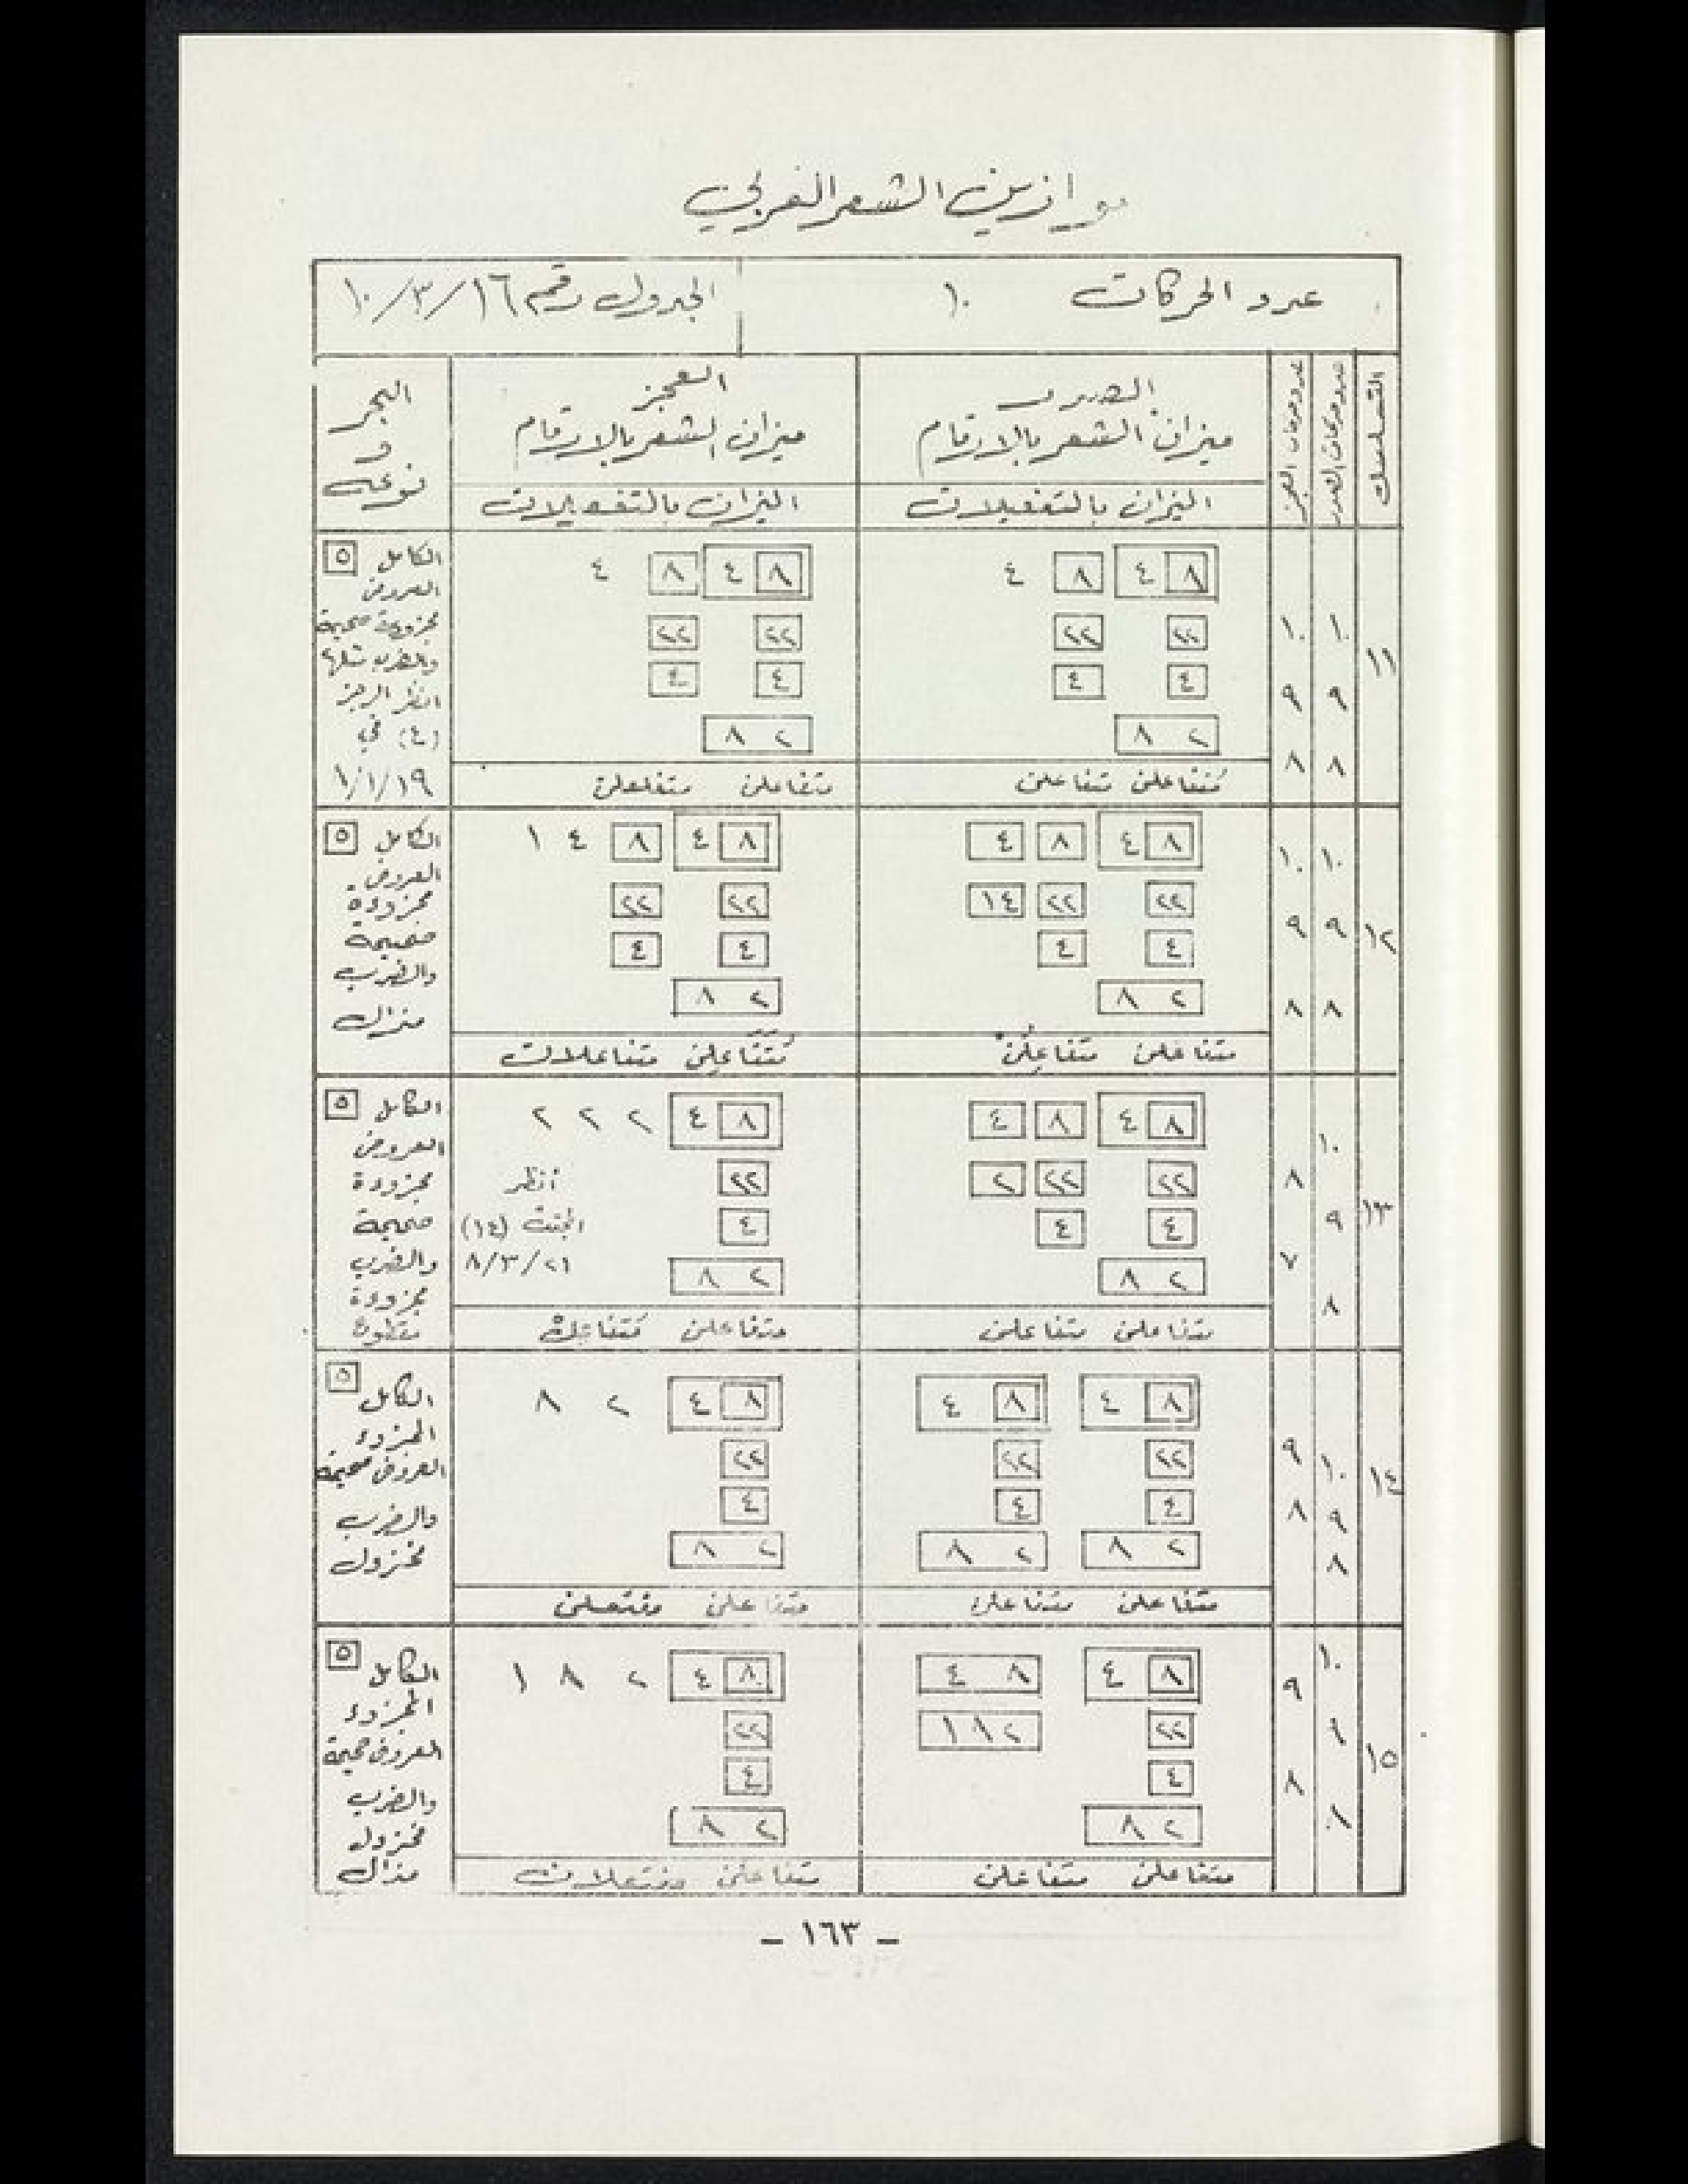 موازين الشعر العربي
عدد الحركات ١٠ الجدول رقم ١٦/٣/١٠
التسلسل عدد حركات الصدر عدد حركات العجز الصدر العجز البحر
ميزان الشعر بالارقام ميزان الشعر بالارقام و
الميزان بالتفعيلات الميزان بالتفعيلات نوعه
١١
١٠ ٩ ٨
١٠ ٩ ٨
٨ ٤ ٨ ٤
٢٢ ٢٢
٤ ٤
٢ ٨
متفاعلن متفاعلن
٨ ٤ ٨ ٤
٢٢ ٢٢
٤ ٤
٢ ٨
متفاعلن متفاعلن
الكامل ٥
العروض
مجزوءة صحيحة
والضرب مثلها
انظر الرجز
(٤) في
١/١/١٩
١٢
١٠ ٩ ٨
١٠ ٩ ٨
٨ ٤ ٨ ٤
٢٢ ٢٢ ١٤
٤ ٤
٢ ٨
متفاعلن متفاعلن
٨ ٤ ٨ ٤ ١
٢٢ ٢٢
٤ ٤
٢ ٨
متفاعلن متفاعلات
الكامل ٥
العروض
مجزوءة
صحيحة
والضرب
مذال
١٣
١٠ ٩ ٨
٨ ٧
٨ ٤ ٨ ٤
٢٢ ٢٢ ٢
٤ ٤
٢ ٨
متفاعلن متفاعلن
٨ ٤ ٢ ٢ ٢
٢٢ أنظر
٤ المجتث (١٤)
٢ ٨ ٨/٣/٢١
متفاعلن
الكامل ٥
العروض
مجزوءة
صحيحة
والضرب
مجزوءة
مقطوع
١٤
١٠ ٩ ٨
٩ ٨
٨ ٤ ٨ ٤
٢٢ ٢٢
٤ ٤
٢ ٨ ٢ ٨
متفاعلن متفاعلن
٨ ٤ ٢ ٨
٢٢
٤
٢ ٨
متفاعلن مفتعلن
الكامل ٥
المجزوء
العروض صحيحة
والضرب
مخزول
١٥
١٠ ٩ ٨
٩ ٨
٨ ٤ ٨ ٤
٢٢ ٢ ٨ ١
٤
٢ ٨
متفاعلن متفاعلن
٨ ٤ ٢ ٨ ١
٢٢
٤
٢ ٨
متفاعلن مفتعلات
الكامل ٥
المجزوء
العروض صحيحة
والضرب
مخزول
مذال
– ١٦٣ –